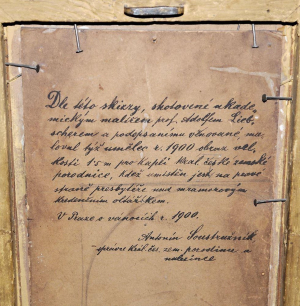 Dle této skizzy, zhotovené akade-
mickým malířem prof. Adolfem Lieb-
scherem a podepsanému věnované ma-
loval týž umělec r. 1900 obraz veli-
kosti 15 m pro kapli král. české zemské
porodnice, kdež umístěn jest na pravé
straně presbytéře nad mramorovým
kredenčním oltáříkem.
V Praze o vánocích r. 1900.
Antonín
správce král. čes. zem. porodince a
nalezince